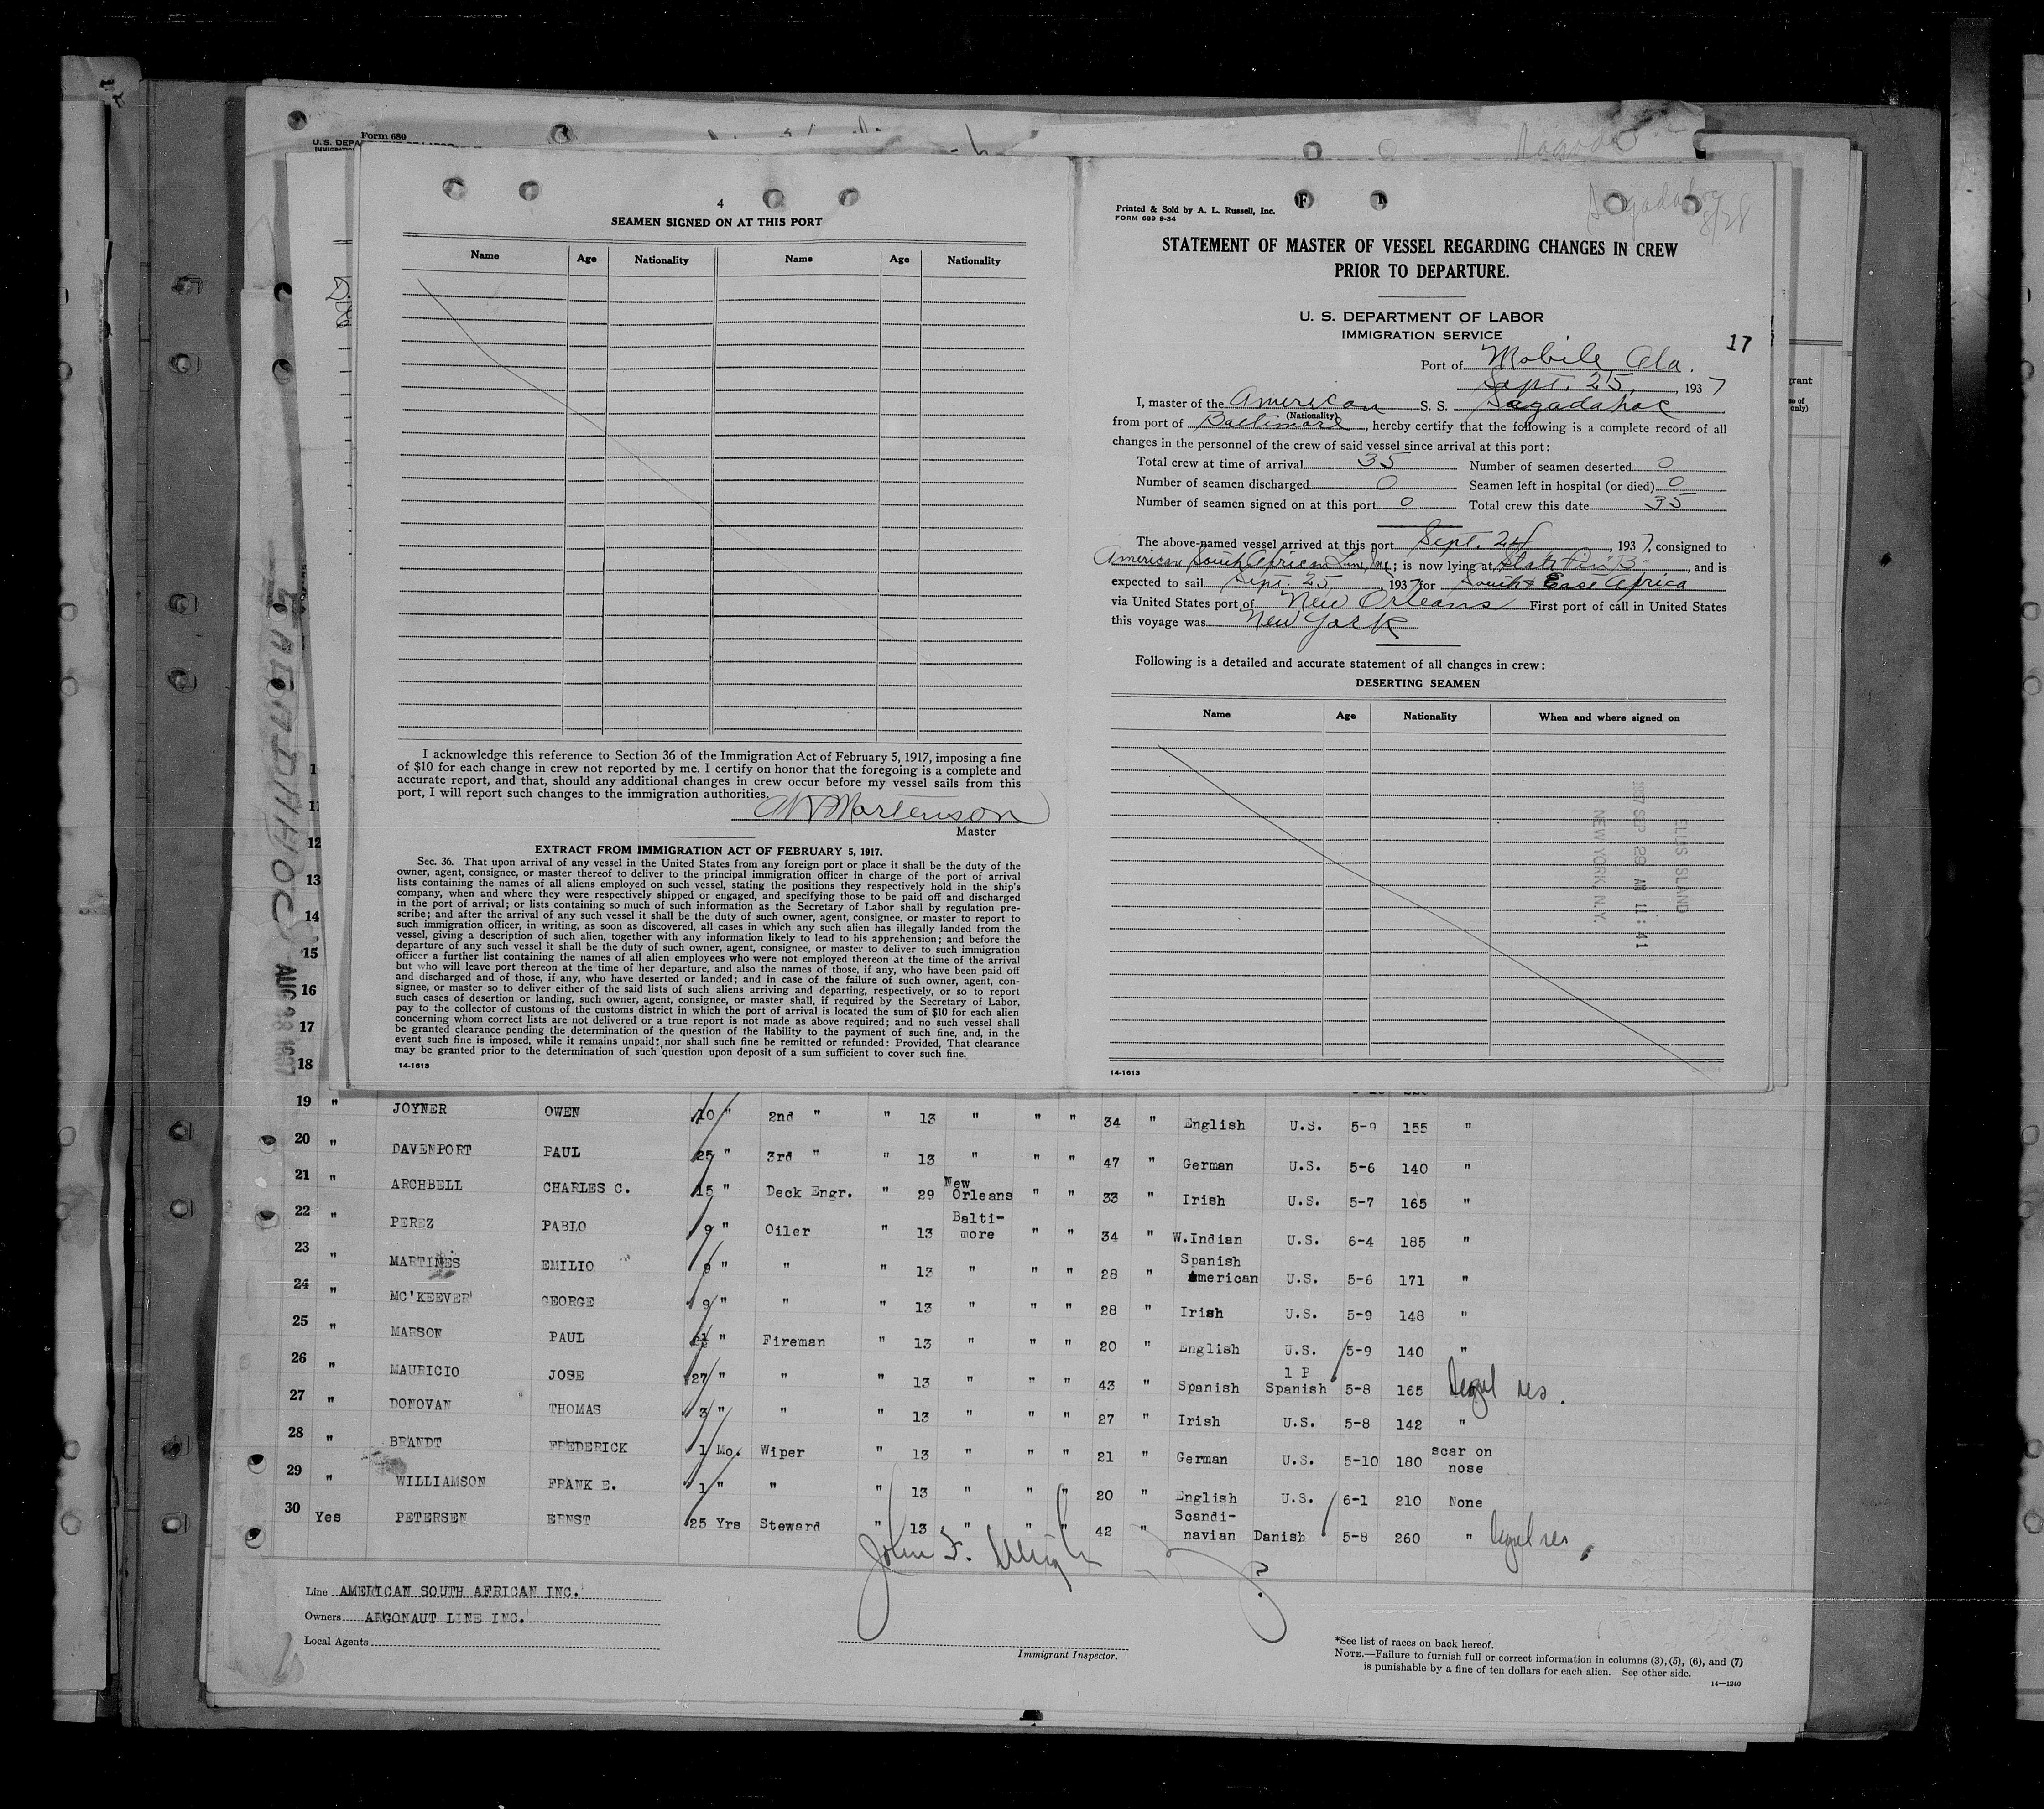 Form 680
4
SEAMEN SIGNED ON AT THIS PORT
Name Age Nationality Name Age Nationality
I acknowledge this reference to Section 36 of the Immigration Act of February 5, 1917, imposing a fine
of $10 for each change in crew not reported by me. I certify on honor that the foregoing is a complete and
accurate report, and that, should any additional changes in crew occur before my vessel sails from this
port, I will report such changes to the immigration authorities.
Mortenson
Master
EXTRACT FROM IMMIGRATION ACT OF FEBRUARY 5, 1917.
Sec. 36. That upon arrival of any vessel in the United States from any foreign port or place it shall be the duty of the
owner, agent, consignee, or master thereof to deliver to the principal immigration officer in charge of the port of arrival
lists containing the names of all aliens employed on such vessel, stating the positions they respectively hold in the ship's
company, when and where they were respectively shipped or engaged, and specifying those to be paid off and discharged
in the port of arrival; or lists containing so much of such information as the Secretary of Labor shall by regulation pre-
scribe; and after the arrival of any such vessel it shall be the duty of such owner, agent, consignee, or master to report to
such immigration officer, in writing, as soon as discovered, all cases in which any such alien has illegally landed from the
vessel, giving a description of such alien, together with any information likely to lead to his apprehension; and before the
departure of any such vessel it shall be the duty of such owner, agent, consignee, or master to deliver to such immigration
officer a further list containing the names of all alien employees who were not employed thereon at the time of the arrival
but who will leave port thereon at the time of her departure, and also the names of those, if any, who have been paid off
and discharged and of those, if any, who have deserted or landed; and in case of the failure of such owner, agent, con-
signee, or master so to deliver either of the said lists of such aliens arriving and departing, respectively, or so to report
such cases of desertion or landing, such owner, agent, consignee, or master shall, if required by the Secretary of Labor,
pay to the collector of customs of the customs district in which the port of arrival is located the sum of $10 for each alien
concerning whom correct lists are not delivered or a true report is not made as above required; and no such vessel shall
be granted clearance pending the determination of the question of the liability to the payment of such fine, and, in the
event such fine is imposed, while it remains unpaid; nor shall such fine be remitted or refunded: Provided, That clearance
may be granted prior to the determination of such question upon deposit of a sum sufficient to cover such fine.
14-1613
Printed & Sold by A. L. Russell, Inc.
FORM 689 9-34
Sagadahoc
8/28
STATEMENT OF MASTER OF VESSEL REGARDING CHANGES IN CREW
PRIOR TO DEPARTURE.
U. S. DEPARTMENT OF LABOR
IMMIGRATION SERVICE
17
Port of Mobile Ala.
Sept. 25, 1937
I, master of the American S. S. Sagadahoc
(Nationality)
from port of Baltimore, hereby certify that the following is a complete record of all
changes in the personnel of the crew of said vessel since arrival at this port:
Total crew at time of arrival 35 Number of seamen deserted 0
Number of seamen discharged 0 Seamen left in hospital (or died) 0
Number of seamen signed on at this port 0 Total crew this date 35
The above-named vessel arrived at this port Sept. 24, 1937, consigned to
American South African Line, Inc; is now lying at State Pier B, and is
expected to sail Sept. 25, 1937 for South & East Africa
via United States port of New Orleans First port of call in United States
this voyage was New York
Following is a detailed and accurate statement of all changes in crew:
DESERTING SEAMEN
Name Age Nationality When and where signed on
ELLIS ISLAND
1937 SEP 29 AM 11:41
NEW YORK, N.Y.
14-1613
SAGADAHOC
AUG 28 1937
12
13
14
15
16
17
18
19 " JOYNER OWEN 10 " 2nd " " 13 " " " 34 " English U.S. 5-9 155 "
20 " DAVENPORT PAUL 25 " 3rd " " 13 " " " 47 " German U.S. 5-6 140 "
21 " ARCHBELL CHARLES C. 15 " Deck Engr. " 29 New Orleans " " 33 " Irish U.S. 5-7 165 "
22 " PEREZ PABLO 9 " Oiler " 13 Balti-more " " 34 " W.Indian U.S. 6-4 185 "
23 " MARTINES EMILIO 9 " " " 13 " " " 28 " Spanish American U.S. 5-6 171 "
24 " MC'KEEVER GEORGE 9 " " " 13 " " " 28 " Irish U.S. 5-9 148 "
25 " MARSON PAUL " Fireman " 13 " " " 20 " English U.S. 5-9 140 "
26 " MAURICIO JOSE 27 " " " 13 " " " 43 " Spanish 1 P Spanish 5-8 165 Legal res.
27 " DONOVAN THOMAS 3 " " " 13 " " " 27 " Irish U.S. 5-8 142 "
28 " BRANDT FREDERICK 1 Mo. Wiper " 13 " " " 21 " German U.S. 5-10 180 scar on nose
29 " WILLIAMSON FRANK E. 1 " " " 13 " " " 20 " English U.S. 6-1 210 None
30 Yes PETERSEN ERNST 25 Yrs Steward " 13 " " " 42 " Scandi-navian Danish 5-8 260 " legal res
John F.
Line AMERICAN SOUTH AFRICAN INC.
Owners ARGONAUT LINE INC.
Local Agents
Immigrant Inspector.
*See list of races on back hereof.
NOTE.—Failure to furnish full or correct information in columns (3), (5), (6), and (7)
is punishable by a fine of ten dollars for each alien. See other side.
14—1240